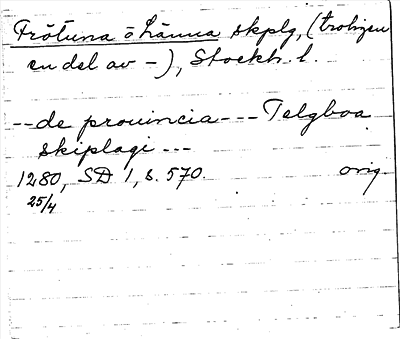 Frötuna o Länna skplg, (troligen
en del av -), Stockh. l.
-- de prouincia --- Telgboa
skiplagi ---
1280, SD 1, s. 570. orig.
25/4